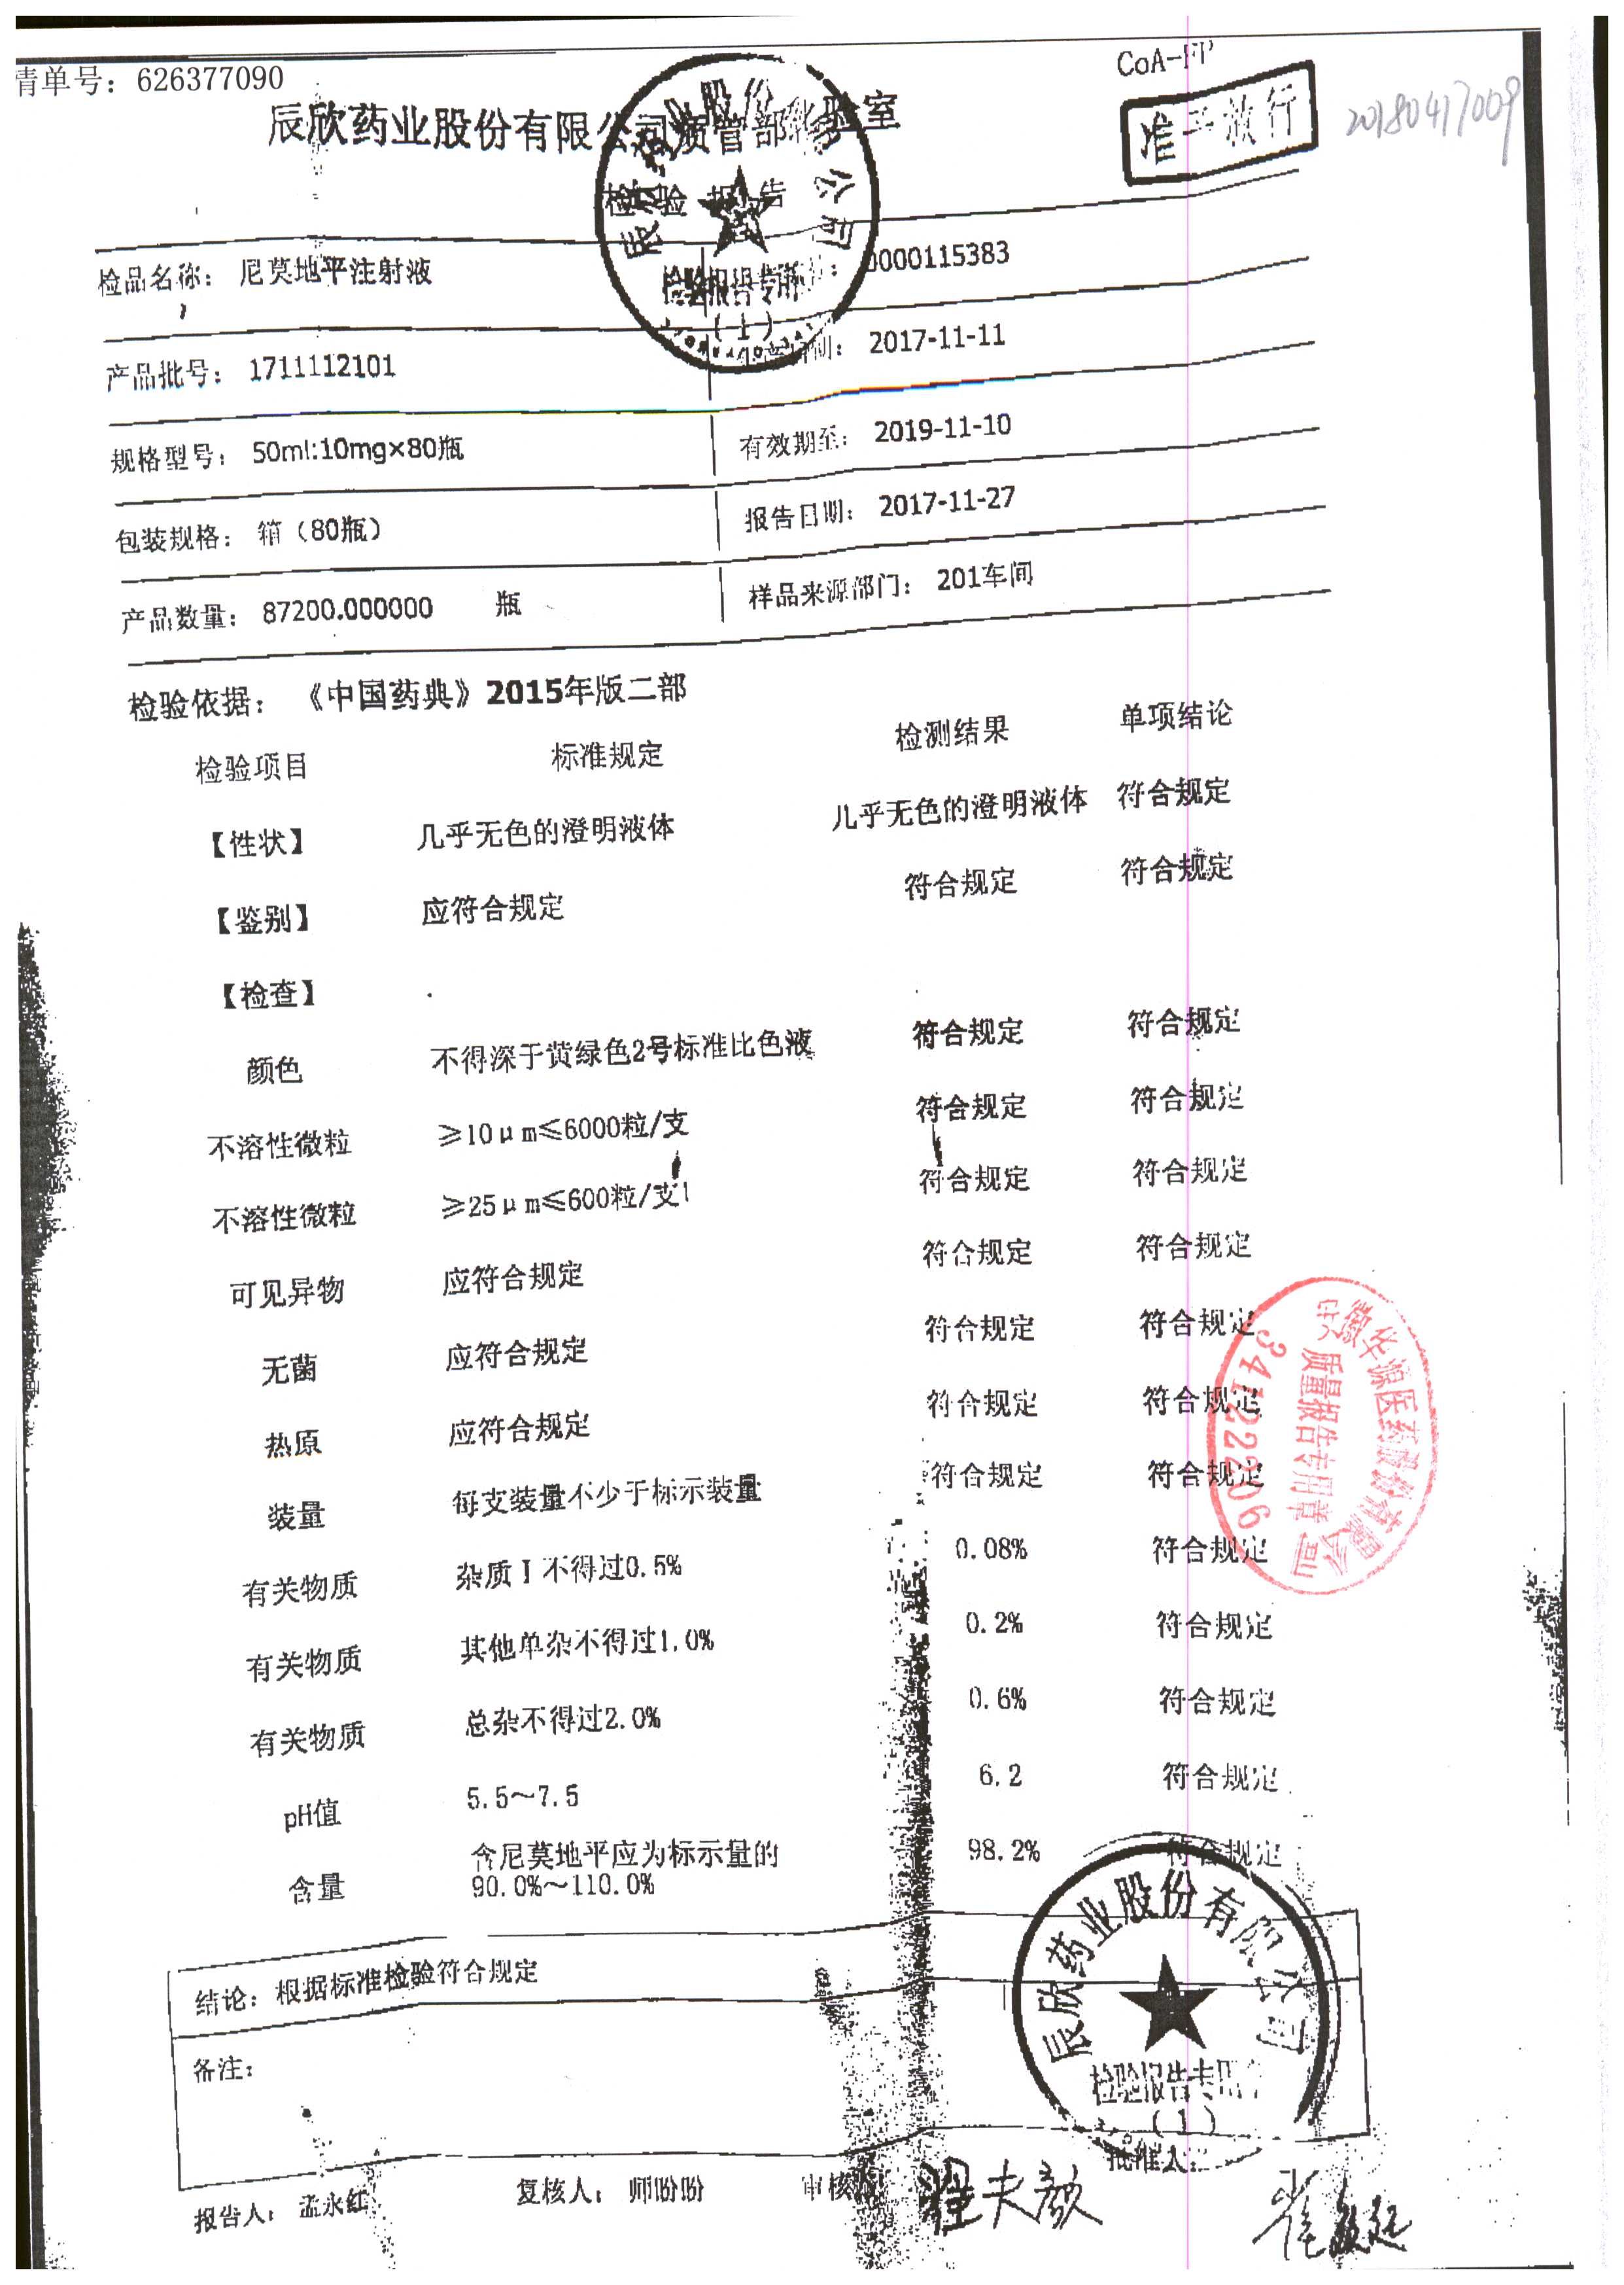 清单号：626377090
CoA-FP
准予放行
20180417009
辰欣药业股份有限公司质管部化验室
检验报告
检品名称： 尼莫地平注射液 0000115383
产品批号： 1711112101 2017-11-11
规格型号： 50ml:10mg×80瓶 有效期至： 2019-11-10
包装规格： 箱（80瓶） 报告日期： 2017-11-27
产品数量： 87200.000000 瓶 样品来源部门： 201车间
检验依据： 《中国药典》2015年版二部
检验项目 标准规定 检测结果 单项结论
【性状】 几乎无色的澄明液体 几乎无色的澄明液体 符合规定
【鉴别】 应符合规定 符合规定 符合规定
【检查】
颜色 不得深于黄绿色2号标准比色液 符合规定 符合规定
不溶性微粒 ≥10μm≤6000粒/支 符合规定 符合规定
不溶性微粒 ≥25μm≤600粒/支 符合规定 符合规定
可见异物 应符合规定 符合规定 符合规定
无菌 应符合规定 符合规定 符合规定
热原 应符合规定 符合规定 符合规定
装量 每支装量不少于标示装量 符合规定 符合规定
有关物质 杂质Ⅰ不得过0.5% 0.08% 符合规定
有关物质 其他单杂不得过1.0% 0.2% 符合规定
有关物质 总杂不得过2.0% 0.6% 符合规定
pH值 5.5～7.5 6.2 符合规定
含量 含尼莫地平应为标示量的 98.2% 符合规定
90.0%～110.0%
安徽华源医药股份有限公司
质量报告专用章
341222206
结论：根据标准检验符合规定
备注：
辰欣药业股份有限公司
检验报告专用
（1）
报告人： 孟永红 复核人： 师盼盼 审核 批准人：